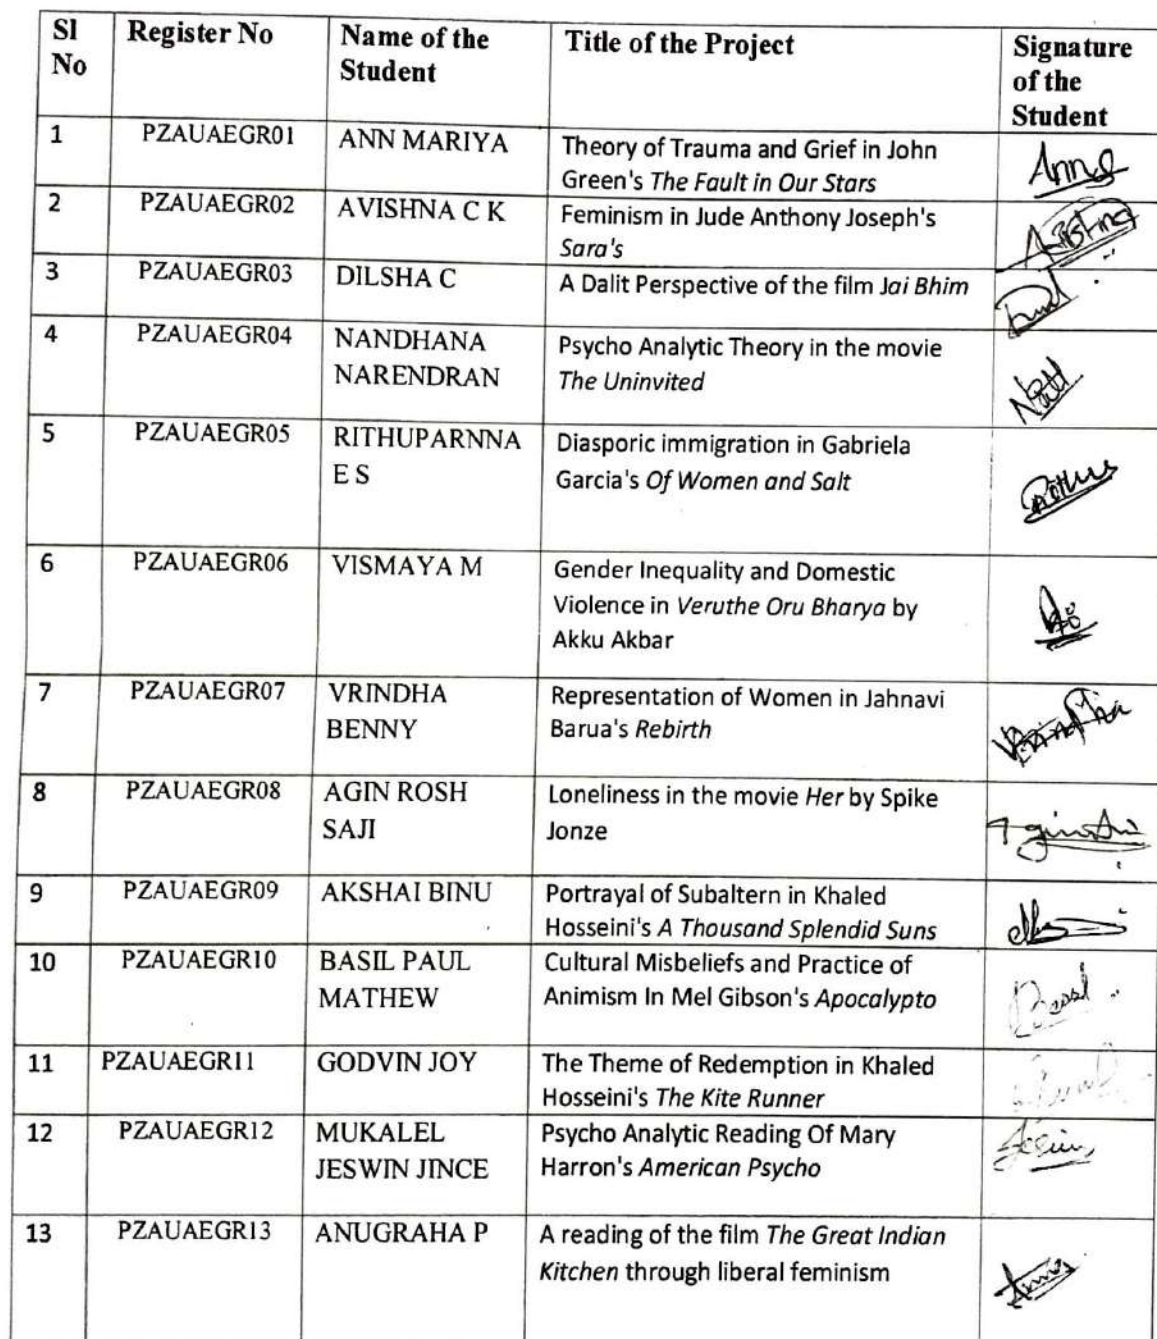 Sl No | Register No | Name of the Student | Title of the Project | Signature of the Student
1 | PZAUAEGR01 | ANN MARIYA | Theory of Trauma and Grief in John Green's The Fault in Our Stars | Ann
2 | PZAUAEGR02 | AVISHNA C K | Feminism in Jude Anthony Joseph's Sara's
3 | PZAUAEGR03 | DILSHA C | A Dalit Perspective of the film Jai Bhim
4 | PZAUAEGR04 | NANDHANA NARENDRAN | Psycho Analytic Theory in the movie The Uninvited
5 | PZAUAEGR05 | RITHUPARNNA E S | Diasporic immigration in Gabriela Garcia's Of Women and Salt
6 | PZAUAEGR06 | VISMAYA M | Gender Inequality and Domestic Violence in Veruthe Oru Bharya by Akku Akbar
7 | PZAUAEGR07 | VRINDHA BENNY | Representation of Women in Jahnavi Barua's Rebirth | Vrindha
8 | PZAUAEGR08 | AGIN ROSH SAJI | Loneliness in the movie Her by Spike Jonze
9 | PZAUAEGR09 | AKSHAI BINU | Portrayal of Subaltern in Khaled Hosseini's A Thousand Splendid Suns
10 | PZAUAEGR10 | BASIL PAUL MATHEW | Cultural Misbeliefs and Practice of Animism In Mel Gibson's Apocalypto
11 | PZAUAEGR11 | GODVIN JOY | The Theme of Redemption in Khaled Hosseini's The Kite Runner
12 | PZAUAEGR12 | MUKALEL JESWIN JINCE | Psycho Analytic Reading Of Mary Harron's American Psycho
13 | PZAUAEGR13 | ANUGRAHA P | A reading of the film The Great Indian Kitchen through liberal feminism